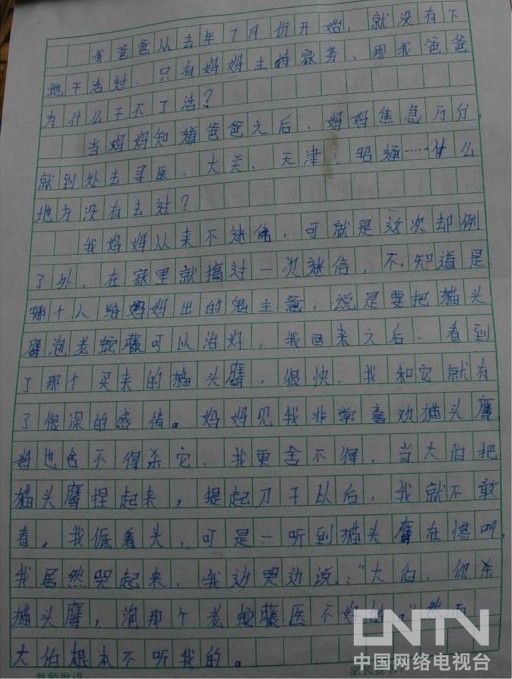 我爸爸从去年7月份开始，就没有下
地干活过，只有妈妈主持家务，那我爸爸
为什么干不了活？
当妈妈知道爸爸之后，妈妈焦急万分，
就到处去寻医，大关、天津、昭通……什么
地方没有去过？
我妈妈从来不迷信，可就是这次却例
了外，在家里就搞过一次迷信，不知道是
那个人给妈妈出的鬼主意，说是要把猫头
鹰泡老蛇藤可以治好，我回来之后，看到
了那个买来的猫头鹰，很快，我和它就有
了很深的感情。妈妈见我非常喜欢猫头鹰
妈也舍不得杀它，我更舍不得，当大伯把
猫头鹰捏起来，提起刀子以后，我就不敢
看，我低着头，可是一听到猫头鹰在惨叫，
我居然哭起来，我边哭边说："大伯，你杀
猫头鹰，泡那个老蛇藤医不好的。"
大伯根本不听我的。
CNTV
中国网络电视台